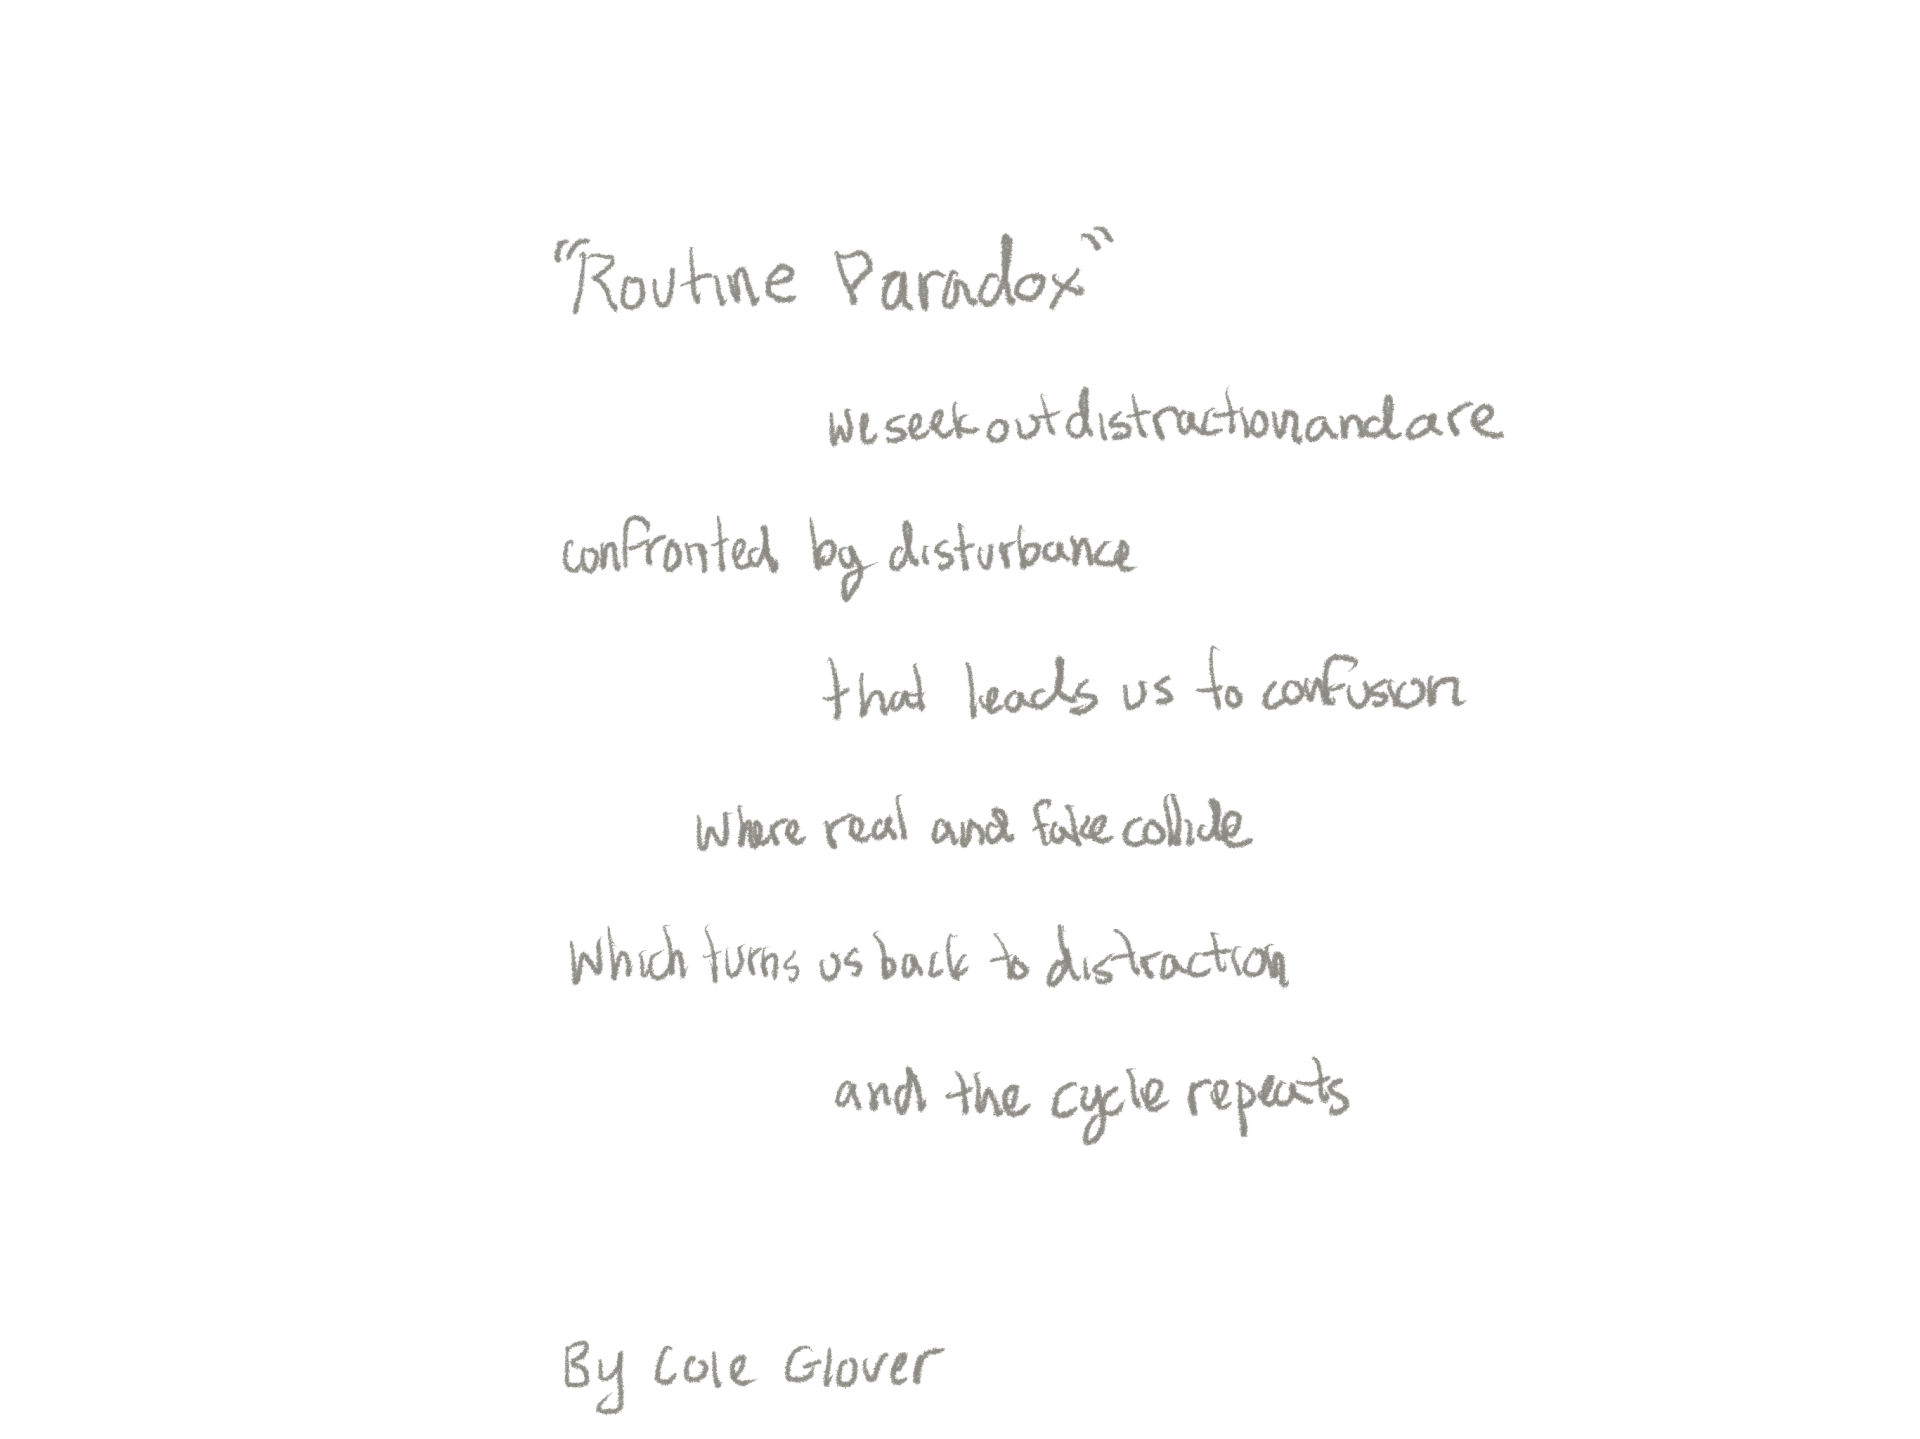 "Routine Paradox"
we seek out distraction and are
confronted by disturbance
that leads us to confusion
Where real and fake collide
Which turns us back to distraction
and the cycle repeats
By Cole Glover